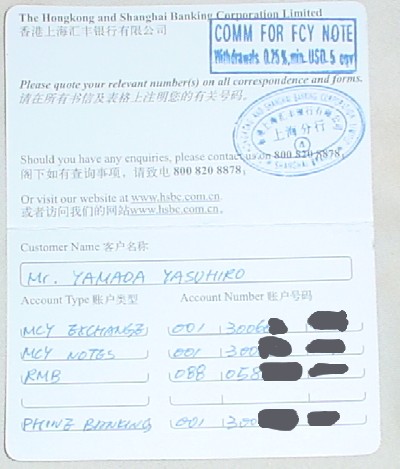 The Hongkong and Shanghai Banking Corporation Limited
香港上海汇丰银行有限公司
COMM FOR FCY NOTE
Withdrawals 0.75%, min. USD. 5 eqv
Please quote your relevant number(s) on all correspondence and forms.
请在所有书信及表格上注明您的有关号码。
上海分行
Should you have any enquiries, please contact us on 800 820 8878;
阁下如有查询事项，请致电 800 820 8878;
Or visit our website at www.hsbc.com.cn.
或者访问我们的网站www.hsbc.com.cn.
Customer Name 客户名称
Mr. YAMADA YASUHIRO
Account Type 账户类型 Account Number 账户号码
MCY EXCHANGE 001 3006
MCY NOTES 001 300
RMB 088 058
PHONE BANKING 001 300